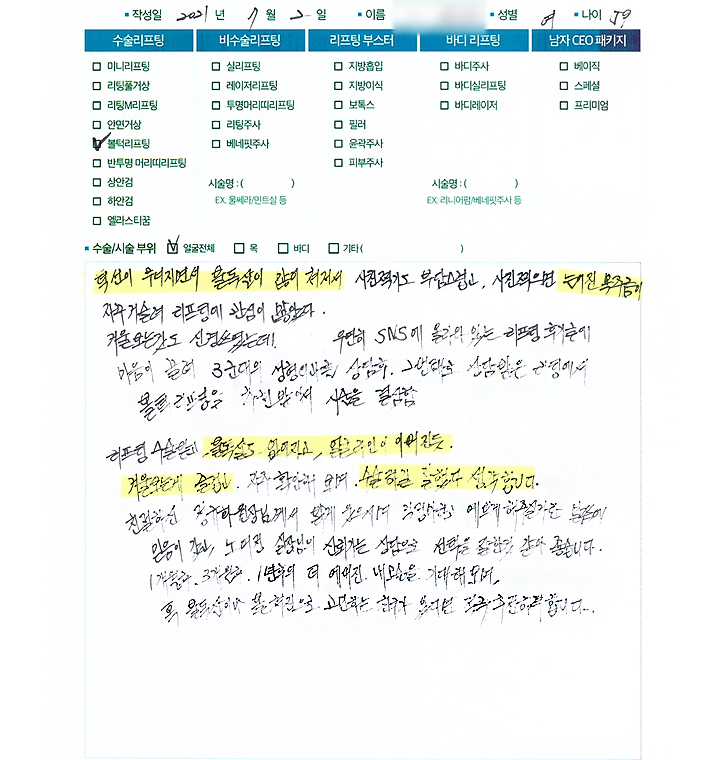 작성일 2021 년 7 월 2 일 이름 성별 여 나이 59
수술리프팅 비수술리프팅 리프팅 부스터 바디 리프팅 남자 CEO 패키지
미니리프팅 실리프팅 지방흡입 바디주사 베이직
리팅풀거상 레이저리프팅 지방이식 바디실리프팅 스페셜
리팅M리프팅 투명머리띠리프팅 보톡스 바디레이저 프리미엄
안면거상 리팅주사 필러
볼턱리프팅 베네핏주사 윤곽주사
반투명 머리띠리프팅 피부주사
상안검 시술명 : ( ) 시술명 : ( )
하안검 EX. 울쎄라/민트실 등 EX. 리니어펌/베네핏주사 등
엘라스티꿈
수술/시술 부위 얼굴전체 목 바디 기타 ( )
턱선이 무너지면서 불독살이 많이 쳐져서 사진찍기도 부담스럽고, 사진찍으면 늘어진 목주름이
자꾸 거슬려 리프팅에 관심이 많았다.
거울보는것도 신경쓰였는데! 우연히 SNS에 올라와 있는 리프팅 후기글에
마음이 끌려 3군데의 성형외과를 상담후, 그반대로 상담받은 에서
볼턱 리프팅을 추천 받아서 시술을 결심함
리프팅 수술인데 불독살도 없어지고, 얼굴라인이 이뻐진듯.
거울보는게 즐겁고 자주 확인하 되며, 수술하길 잘했다 생각합니다.
친절하신 원장님께서 밝게 웃으시며 이쁘게 해주실거란 말씀에
믿음이 갔고, 실장님의 신뢰가는 상담으로 선택을 잘한것 같아 좋습니다.
1개월후, 3개월후, 1년후의 더 예뻐진 내모습을 기대해보며,
혹 불독살이나 볼 쳐짐으로 고민하는 친구가 있다면 적극 추천 합니다..